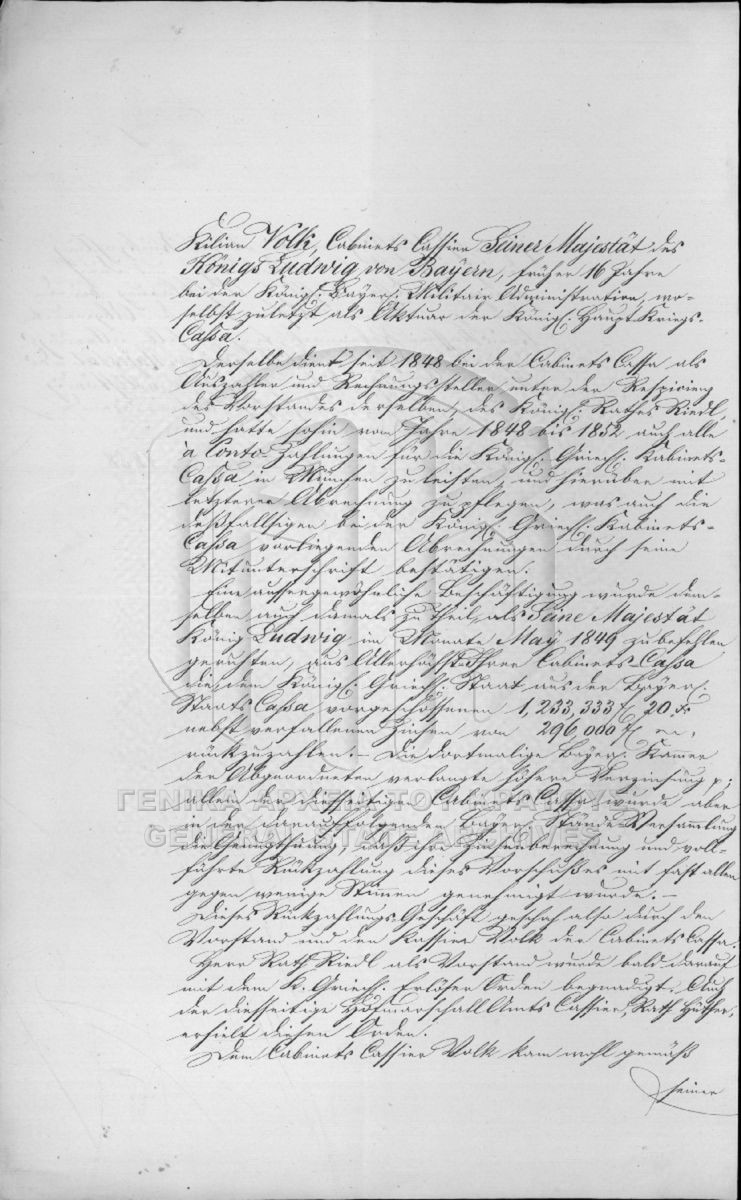 Kilian Volk, Cabinets Cassier Seiner Majestät des
Königs Ludwig von Bayern, früher 16 Jahre
bei der Königl: Bayer: Militair Administration, wo-
selbst zuletzt als Aktuar der Königl: Haupt-Kriegs-
Cassa.
Derselbe dient seit 1848 bei der Cabinets Cassa als
Auszahler und Rechnungssteller unter der Respicienz
des Vorstandes derselben, des Königl: Rathes Riedl,
und hatte sohin vom Jahre 1848 bis 1852 auch alle
à Conto Zahlungen für die Königl: Griech: Kabinets-
Cassa in München zu leisten, und hierüber mit
letzterer Abrechnung zu pflegen, was auch die
deßfallsigen bei der Königl: Griech: Kabinets-
Cassa vorliegenden Abrechnungen durch seine
Mitunterschrift bestätigen.
Eine aussergewöhnliche Beschäftigung wurde dem-
selben auch damals zu Theil, als Seine Majestät
König Ludwig im Monate May 1849 zu befehlen
geruhten, aus Allerhöchst Ihrer Cabinets Cassa
die, dem Königl: Griech: Staat aus der Bayer:
Staats Cassa vorgeschossenen 1,233,333 f 20 x
nebst verfallenen Zinsen von 296,000 f
rückzuzahlen. – Die dortmalige Bayer: Kammer
der Abgeordneten verlangte höhere Verzinsung p:
allein der diesseitigen Cabinets Cassa wurde aber
in der darauffolgenden Bayer: Stände-Versammlung
die Genugthuung, daß ihre Zinsenberechnung und voll-
führte Rückzahlung dieses Vorschußes mit fast allen
gegen wenige Stimmen genehmigt wurde. –
Dieses Rückzahlungs-Geschäft geschah also durch den
Vorstand und den Kassier Volk der Cabinets Cassa.
Herr Rath Riedl als Vorstand wurde bald darauf
mit dem K. Griech: Erlöser Orden begnadigt. Auch
der diesseitige Hofmarschall Amts Cassier, Rath Hüther,
erhielt diesen Orden.
Dem Cabinets Cassier Volk kam wohl gemäß
seiner
ΓΕΝΙΚΑ ΑΡΧΕΙΑ ΤΟΥ ΚΡΑΤΟΥΣ
GENERAL STATE ARCHIVES